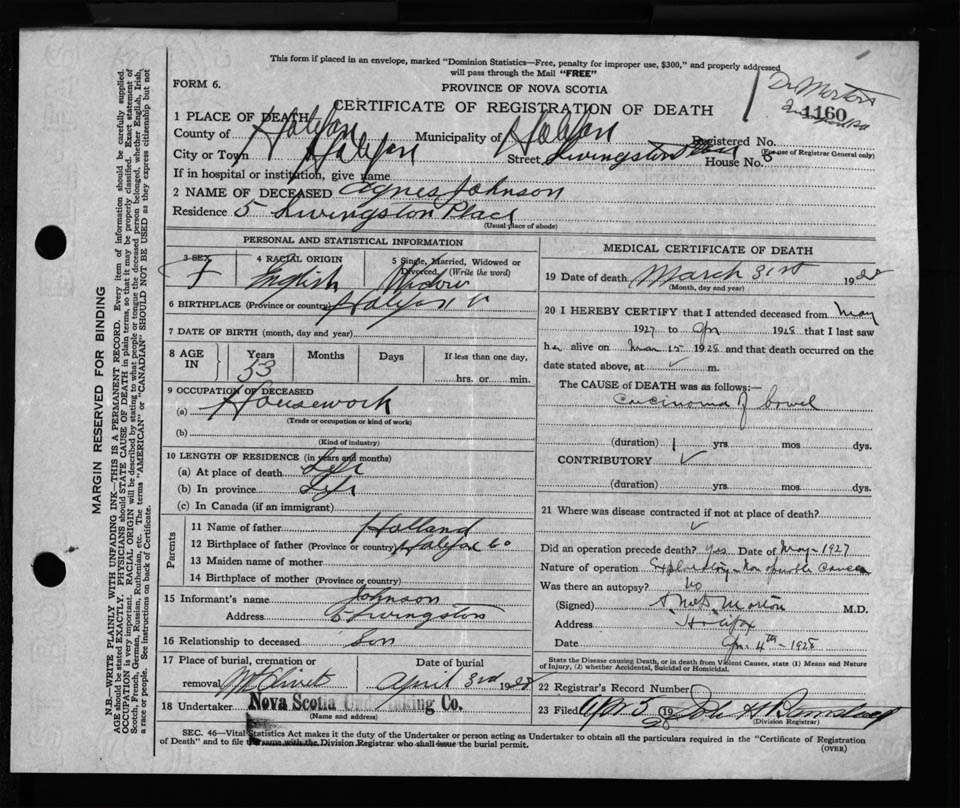 This form if placed in an envelope, marked "Dominion Statistics—Free, penalty for improper use, $300," and properly addressed
will pass through the Mail "FREE"
FORM 6.
PROVINCE OF NOVA SCOTIA
Dr Morton
CERTIFICATE OF REGISTRATION OF DEATH
1160
1 PLACE OF DEATH
County of Halifax Municipality of Halifax Registered No.
(For use of Registrar General only)
City or Town Halifax Street Livingston Place House No. 5
If in hospital or institution, give name
2 NAME OF DECEASED Agnes Johnson
Residence 5 Livingston Place
(Usual place of abode)
PERSONAL AND STATISTICAL INFORMATION
3 SEX 4 RACIAL ORIGIN 5 Single, Married, Widowed or
Divorced, (Write the word)
F English Widow
6 BIRTHPLACE (Province or country) Halifax
7 DATE OF BIRTH (month, day and year)
8 AGE IN Years Months Days If less than one day,
53 hrs. or min.
9 OCCUPATION OF DECEASED
(a) Housework
(Trade or occupation or kind of work)
(b)
(Kind of industry)
10 LENGTH OF RESIDENCE (in years and months)
(a) At place of death Life
(b) In province Life
(c) In Canada (if an immigrant)
Parents
11 Name of father Holland
12 Birthplace of father (Province or country) Halifax Co
13 Maiden name of mother
14 Birthplace of mother (Province or country)
15 Informant's name Johnson
Address 5 Livingston
16 Relationship to deceased Son
17 Place of burial, cremation or Date of burial
removal Mt Olivet April 3rd 1928
18 Undertaker Nova Scotia Undertaking Co.
(Name and address)
MEDICAL CERTIFICATE OF DEATH
19 Date of death March 31st 1928
(Month, day and year)
20 I HEREBY CERTIFY that I attended deceased from May
1927 to Apr 1928 that I last saw
her alive on Mar 15 1928 and that death occurred on the
date stated above, at m.
The CAUSE of DEATH was as follows:—
Carcinoma of bowel
(duration) 1 yrs. mos. dys.
CONTRIBUTORY
(duration) yrs. mos. dys.
21 Where was disease contracted if not at place of death?
Did an operation precede death? Yes Date of May-1927
Nature of operation Exploratory - Non operable cancer
Was there an autopsy? No
(Signed) Morton M.D.
Address Halifax
Date Apr. 4th 1928
State the Disease causing Death, or in death from Violent Causes, state (1) Means and Nature
of Injury, (2) whether Accidental, Suicidal or Homicidal.
22 Registrar's Record Number
23 Filed Apr 5 1928 John H
(Division Registrar)
SEC. 46—Vital Statistics Act makes it the duty of the Undertaker or person acting as Undertaker to obtain all the particulars required in the "Certificate of Registration
of Death" and to file the same with the Division Registrar who shall issue the burial permit.
(OVER)
MARGIN RESERVED FOR BINDING
N.B.—WRITE PLAINLY WITH UNFADING INK—THIS IS A PERMANENT RECORD. Every item of information should be carefully supplied.
AGE should be stated EXACTLY. PHYSICIANS should STATE CAUSE OF DEATH in plain terms, so that it may be properly classified. Exact statement of
OCCUPATION is very important. RACIAL ORIGIN will be described by stating to what people or tongue the deceased person belonged, whether English, Irish,
Scotch, French, German, Russian, Ruthenian, etc. The terms "AMERICAN" or "CANADIAN" SHOULD NOT BE USED as they express citizenship but not
a race or people. See instructions on back of Certificate.